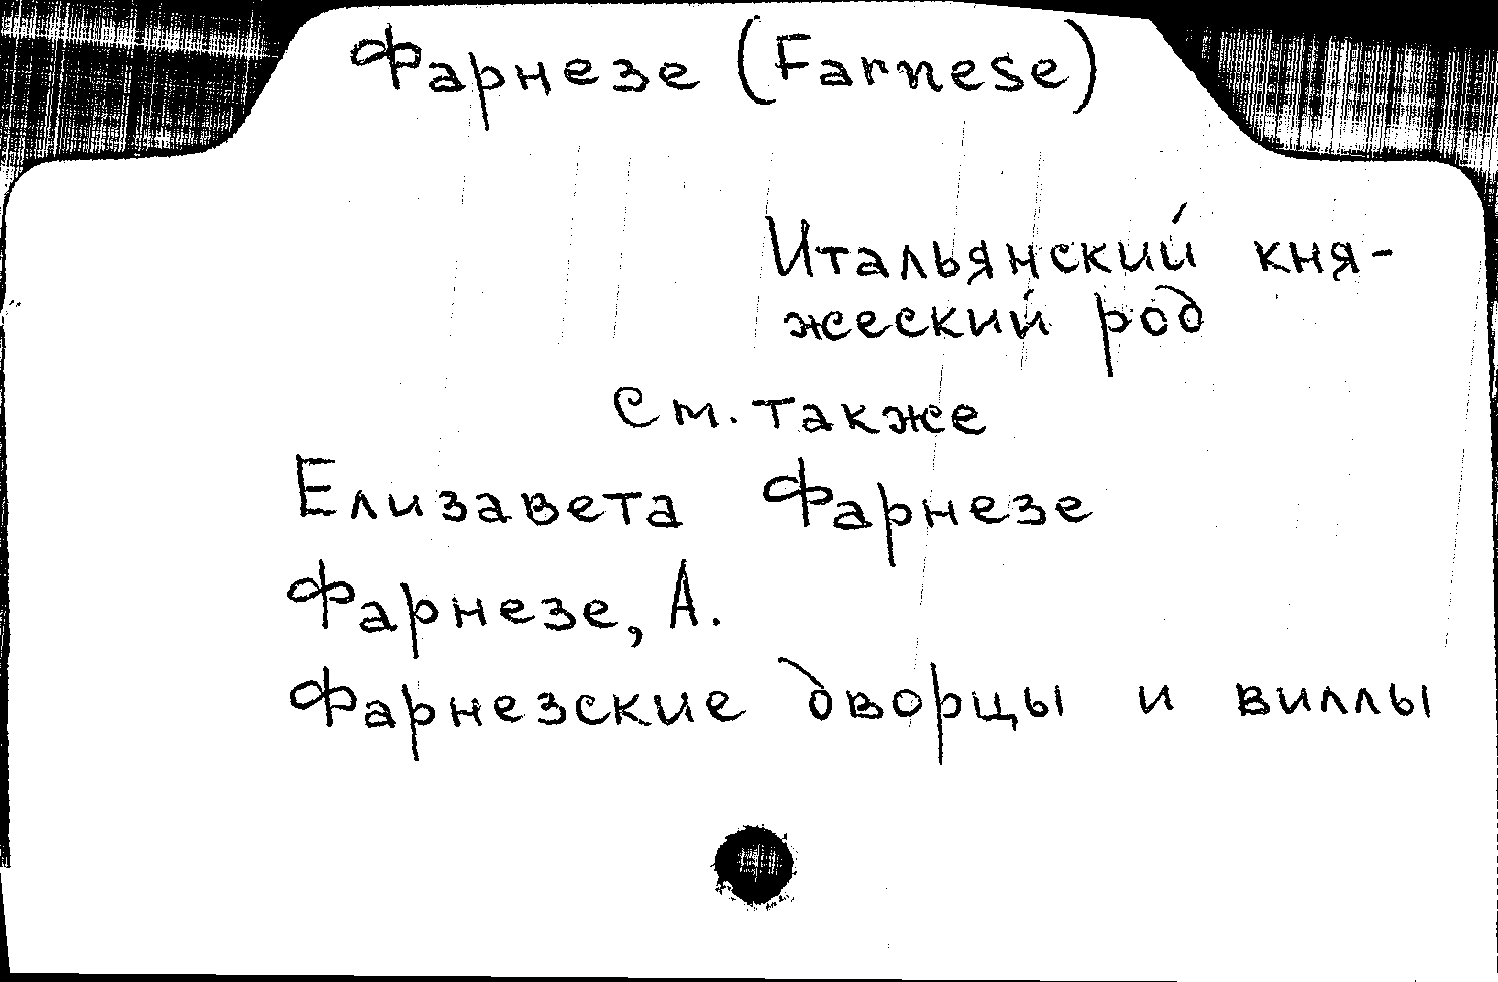 Фарнезе (Farnese)
Итальянский кня-
жеский род
См. также
Елизавета Фарнезе
Фарнезе, А.
Фарнезские дворцы и виллы